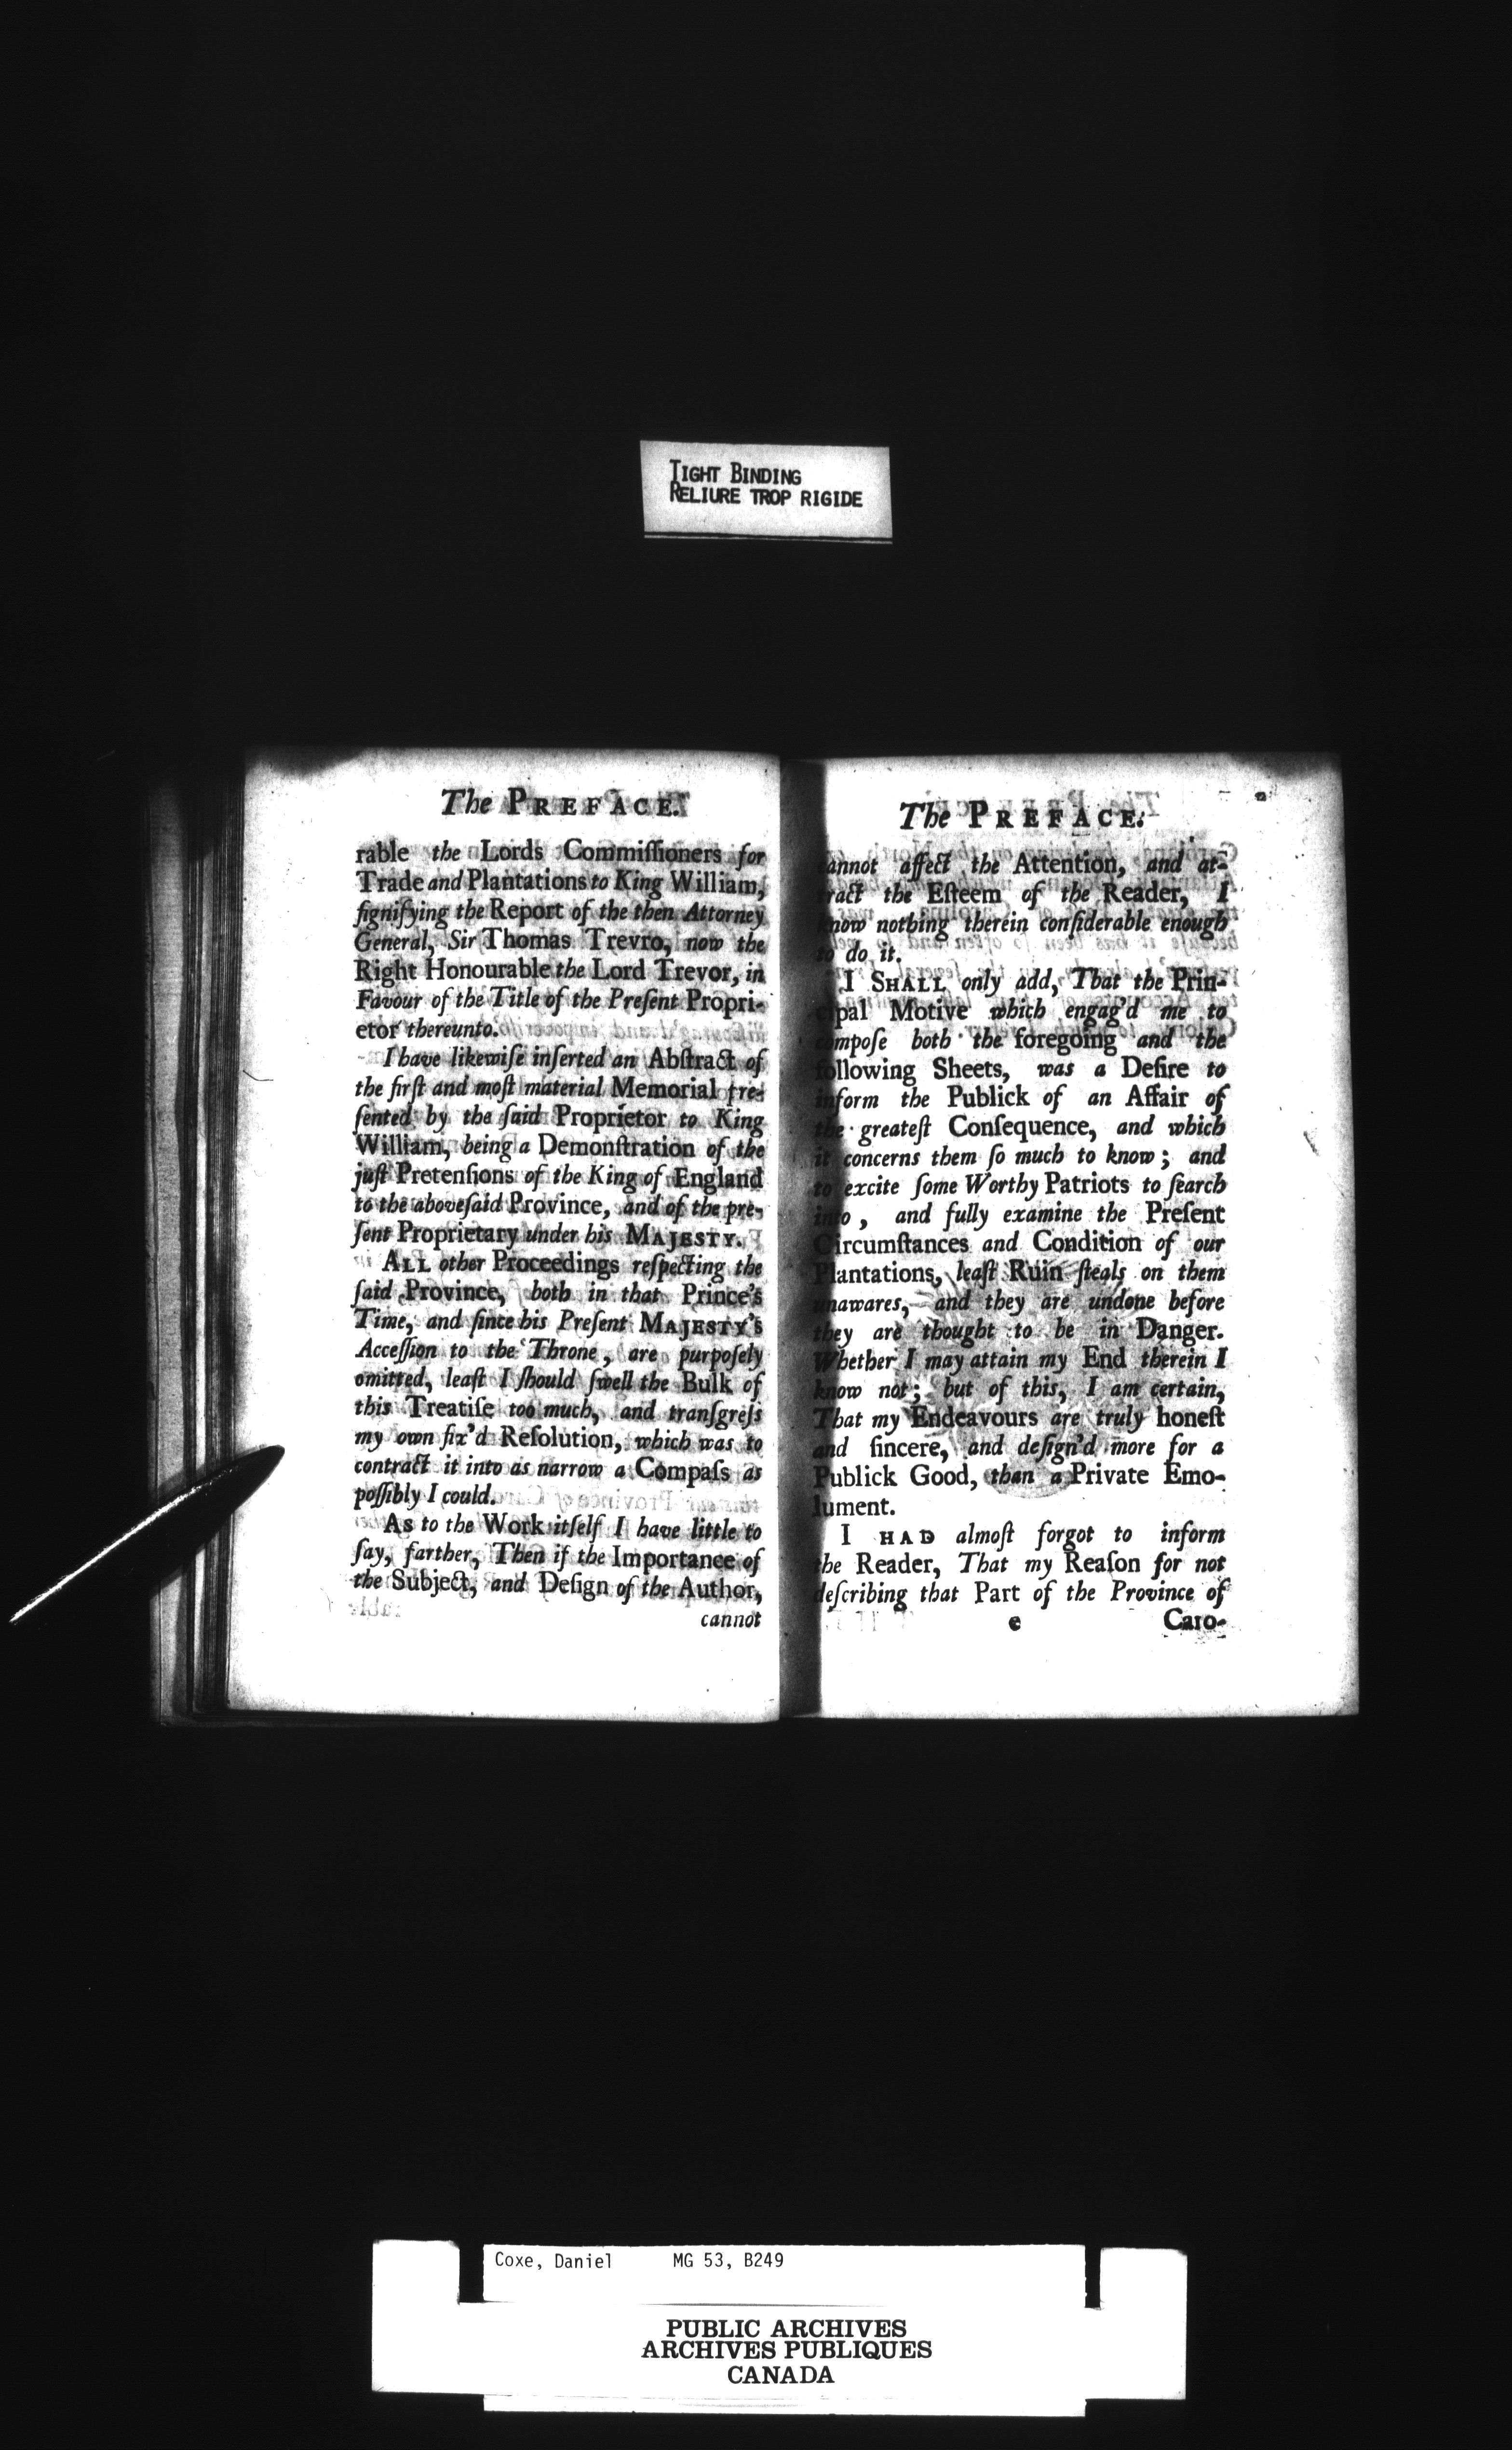 TIGHT BINDING
RELIURE TROP RIGIDE
The PREFACE.
rable the Lords Commiſſioners for
Trade and Plantations to King William,
ſignifying the Report of the then Attorney
General, Sir Thomas Trevro, now the
Right Honourable the Lord Trevor, in
Favour of the Title of the Preſent Propri-
etor thereunto.
I have likewiſe inſerted an Abſtract of
the firſt and moſt material Memorial pre-
ſented by the ſaid Proprietor to King
William, being a Demonſtration of the
juſt Pretenſions of the King of England
to the aboveſaid Province, and of the pre-
ſent Proprietary under his MAJESTY.
ALL other Proceedings reſpecting the
ſaid Province, both in that Prince's
Time, and ſince his Preſent MAJESTY's
Acceſſion to the Throne, are purpoſely
omitted, leaſt I ſhould ſwell the Bulk of
this Treatiſe too much, and tranſgreſs
my own fix'd Reſolution, which was to
contract it into as narrow a Compaſs as
poſſibly I could.
As to the Work itſelf I have little to
ſay, farther, Then if the Importance of
the Subject, and Deſign of the Author,
cannot
The PREFACE.
cannot affect the Attention, and at-
tract the Eſteem of the Reader, I
know nothing therein conſiderable enough
to do it.
I SHALL only add, That the Prin-
cipal Motive which engag'd me to
compoſe both the foregoing and the
following Sheets, was a Deſire to
inform the Publick of an Affair of
the greateſt Conſequence, and which
it concerns them ſo much to know; and
to excite ſome Worthy Patriots to ſearch
into, and fully examine the Preſent
Circumſtances and Condition of our
Plantations, leaſt Ruin ſteals on them
unawares, and they are undone before
they are thought to be in Danger.
Whether I may attain my End therein I
know not; but of this, I am certain,
That my Endeavours are truly honeſt
and ſincere, and deſign'd more for a
Publick Good, than a Private Emo-
lument.
I HAD almoſt forgot to inform
the Reader, That my Reaſon for not
deſcribing that Part of the Province of
e Caro-
Coxe, Daniel MG 53, B249
PUBLIC ARCHIVES
ARCHIVES PUBLIQUES
CANADA